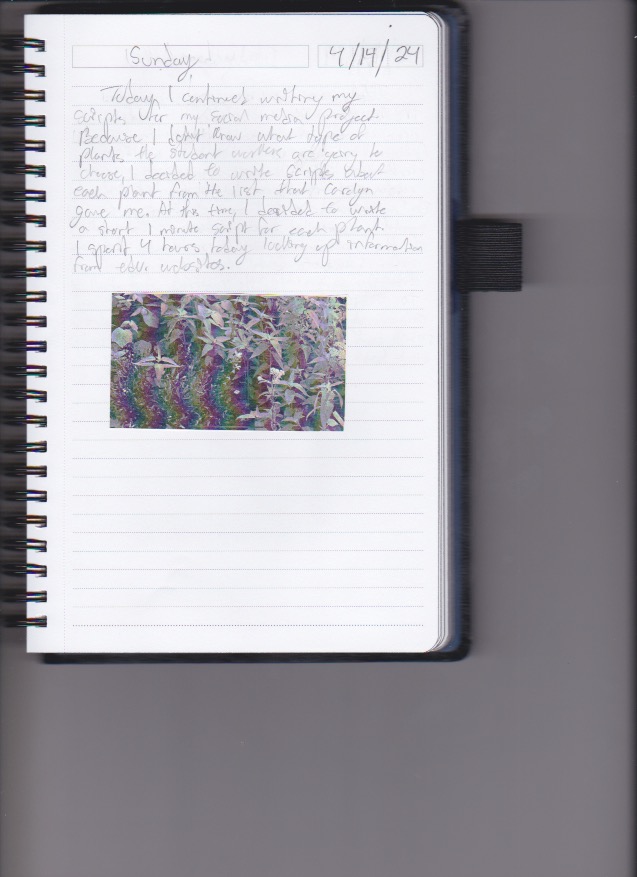 Sunday 4/14/24
Today, I continued writing my
scripts for my social media project.
Because I don't know what type of
plants the student workers are going to
choose, I decided to write scripts about
each plant from the list that Carolyn
gave me. At this time, I decided to write
a short 1 minute script for each plant.
I spent 4 hours today looking up information
from edu. websites.